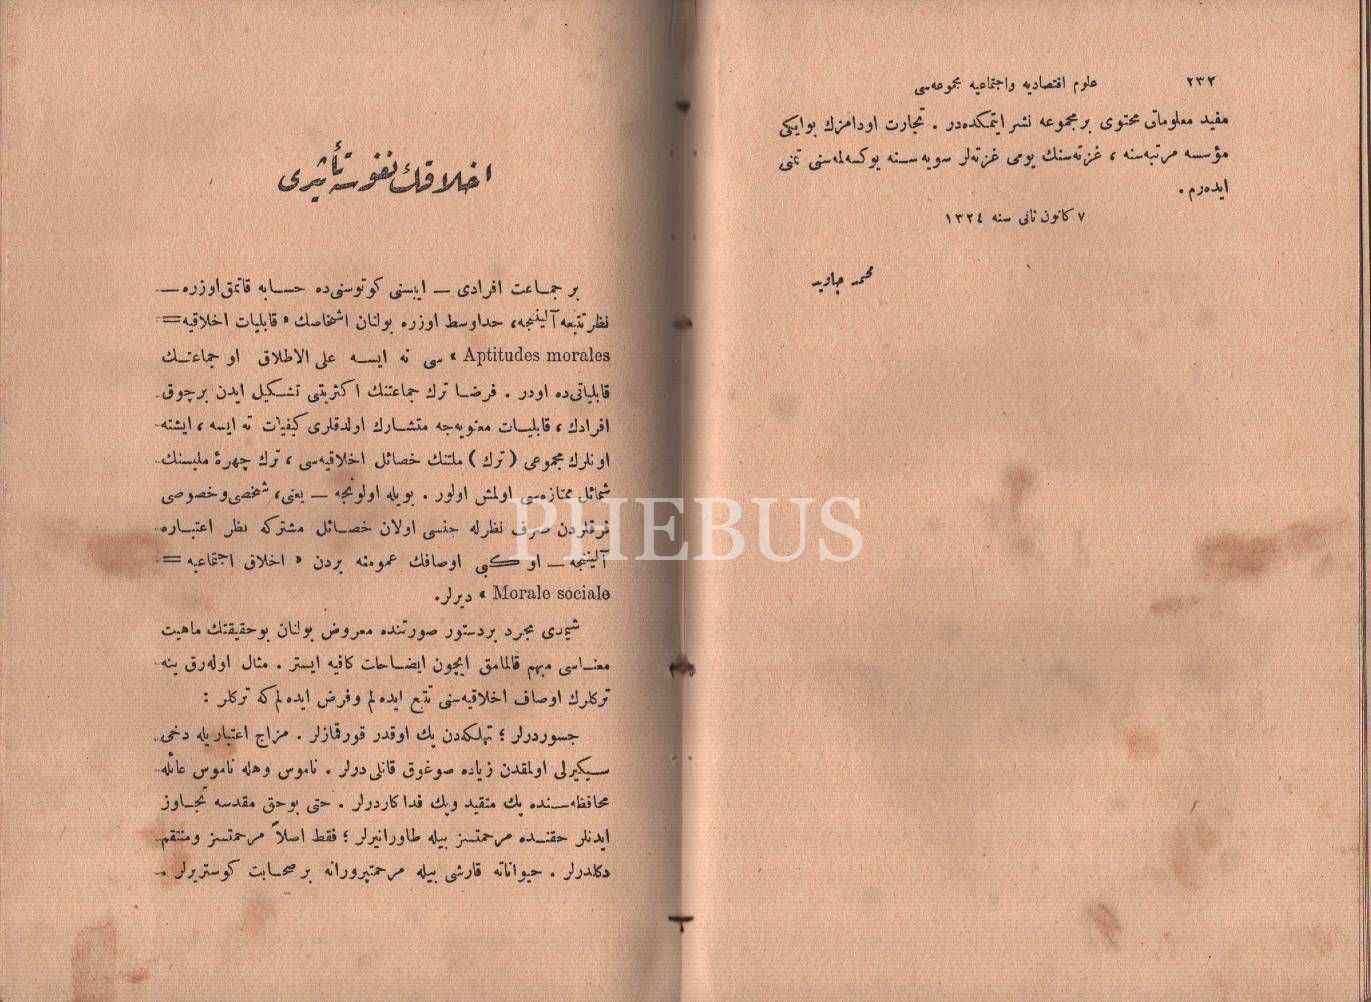 ٢٣٢ علوم اقتصادیه و اجتماعیه مجموعه‌سی
مفید معلوماتی محتوی بر مجموعه نشر ایتمکده‌در . تجارت اودامزك بو ایکی
مؤسسه مرتبه‌سنه ، غزته‌سنك یومی غزته‌لر سویه‌سنه یوکسه‌لمه‌سنی تمنی
ایده‌رم .
٧ کانون ثانی سنه ١٣٢٤
محمد جاوید
اخلاقك نفوسه تأثیری
بر جماعت افرادی — اییسنی کوتوسنی‌ده حسابه قاتمق اوزره —
نظر تتبعه آلینجه، حد اوسط اوزره بولنان اشخاصك « قابلیات اخلاقیه =
Aptitudes morales » سی نه ایسه علی الاطلاق او جماعتك
قابلیاتی‌ده اودر . فرضا ترك جماعتنك اکثریتی تشکیل ایدن برچوق
افرادك ، قابلیات معنویه‌جه متشارك اولدقلری کیفیات نه ایسه ، ایشته
اونلرك مجموعی ( ترك ) ملتنك خصائل اخلاقیه‌سی ، ترك چهرهٔ ملیسنك
شمائل ممتازه‌سی اولمش اولور . بویله اولونجه — یعنی، شخصی و خصوصی
فرقلردن صرف نظرله جنسی اولان خصائل مشترکه نظر اعتباره
آلینجه — او کبی اوصافك عمومنه بردن « اخلاق اجتماعیه =
Morale sociale » دیرلر.
شیمدی مجرد بر دستور صورتنده معروض بولنان بو حقیقتك ماهیت
معناسی مبهم قالمامق ایچون ایضاحات کافیه ایستر . مثال اوله‌رق ینه
ترکلرك اوصاف اخلاقیه‌سنی تتبع ایده‌لم و فرض ایده‌لم که ترکلر :
جسوردرلر ؛ تهلکه‌دن پك اوقدر قورقمازلر . مزاج اعتباریله دخی
سیکیرلی اولمقدن زیاده صوغوق قانلی‌درلر . ناموس و هله ناموس عائله
محافظه‌سنده پك متقید و پك فداکاردرلر . حتی بو حق مقدسه تجاوز
ایدنلر حقنده مرحمتسز بیله طاورانیرلر ؛ فقط اصلاً مرحمتسز و منتقم
دکلدرلر . حیواناته قارشی بیله مرحمتپرورانه بر صحابت کوستریرلر .
PHEBUS